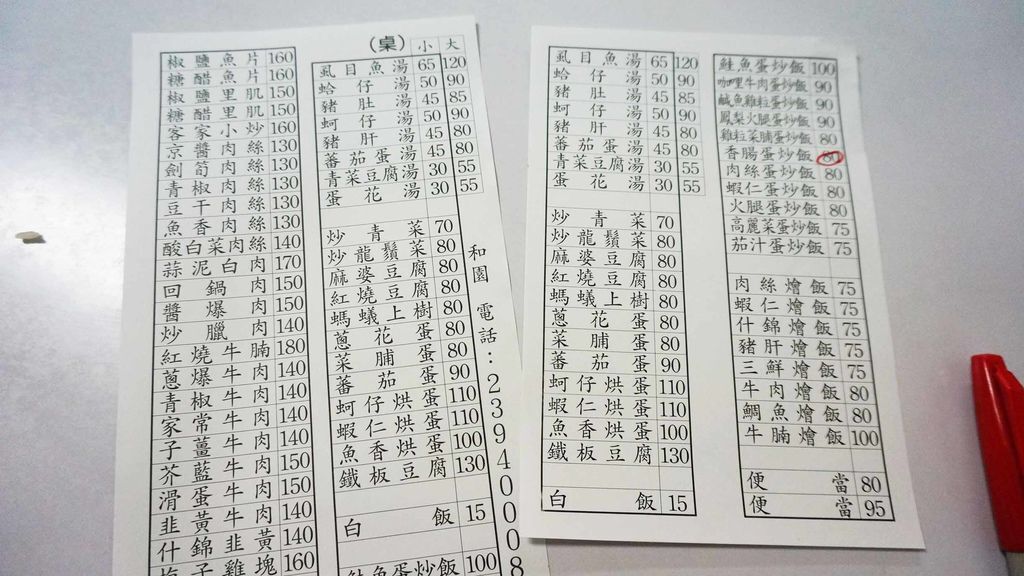 椒鹽魚片 160
糖醋魚片 160
椒鹽里肌 150
糖醋里肌 150
客家小炒 160
京醬肉絲 130
劍筍肉絲 130
青椒肉絲 130
豆干肉絲 130
魚香肉絲 130
酸白菜肉絲 140
蒜泥白肉 170
回鍋肉 150
醬爆肉 150
炒臘肉 140
紅燒牛腩 180
蔥爆牛肉 140
青椒牛肉 140
家常牛肉 140
子薑牛肉 140
芥藍牛肉 150
滑蛋牛肉 150
韭黃牛肉 140
什錦韭黃 140
子雞塊 160
(桌) 小 大
虱目魚湯 65 120
蛤仔湯 50 90
豬肚湯 45 85
蚵仔湯 50 90
豬肝湯 45 80
蕃茄蛋湯 45 80
青菜豆腐湯 30 55
蛋花湯 30 55
炒青菜 70
炒龍鬚菜 80
麻婆豆腐 80
紅燒豆腐 80
螞蟻上樹 80
蔥花蛋 80
菜脯蛋 80
蕃茄蛋 90
蚵仔烘蛋 110
蝦仁烘蛋 110
魚香烘蛋 100
鐵板豆腐 130
白飯 15
鮭魚蛋炒飯 100
和園 電話:23940008
虱目魚湯 65 120
蛤仔湯 50 90
豬肚湯 45 85
蚵仔湯 50 90
豬肝湯 45 80
蕃茄蛋湯 45 80
青菜豆腐湯 30 55
蛋花湯 30 55
炒青菜 70
炒龍鬚菜 80
麻婆豆腐 80
紅燒豆腐 80
螞蟻上樹 80
蔥花蛋 80
菜脯蛋 80
蕃茄蛋 90
蚵仔烘蛋 110
蝦仁烘蛋 110
魚香烘蛋 100
鐵板豆腐 130
白飯 15
鮭魚蛋炒飯 100
咖哩牛肉蛋炒飯 90
鹹魚雞粒蛋炒飯 90
鳳梨火腿蛋炒飯 90
雞粒菜脯蛋炒飯 80
香腸蛋炒飯 80
肉絲蛋炒飯 80
蝦仁蛋炒飯 80
火腿蛋炒飯 80
高麗菜蛋炒飯 75
茄汁蛋炒飯 75
肉絲燴飯 75
蝦仁燴飯 75
什錦燴飯 75
豬肝燴飯 75
三鮮燴飯 75
牛肉燴飯 80
鯛魚燴飯 80
牛腩燴飯 100
便當 80
便當 95